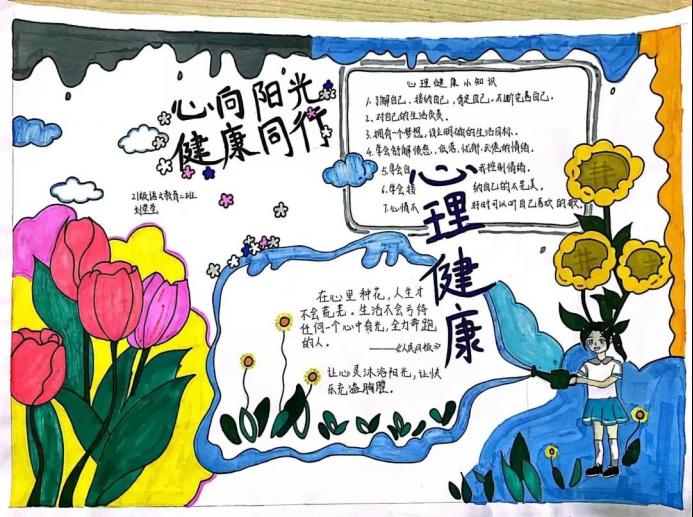 心向阳光
健康同行
21级语文教育二班
心理健康小知识
1.了解自己、接纳自己,肯定自己,不断完善自己。
2.对自己的生活负责。
3.拥有一个梦想,设立明确的生活目标。
4.学会舒解愤怒、低落、忧郁、厌倦的情绪。
5.学会自 或控制情绪。
6.学会接 纳自己的不完美。
7.心情不 好时可以听自己喜欢的歌。
心理健康
在心里种花,人生才
不会荒芜。生活不会亏待
任何一个心中有光,全力奔跑
的人。
——《人民日报》
让心灵沐浴阳光,让快
乐充溢胸膛。